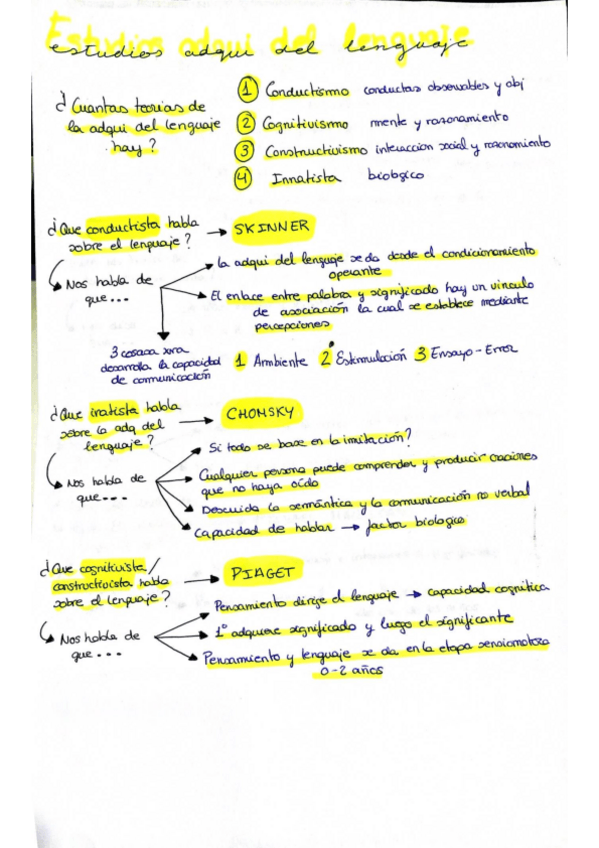 Estudios adqui del lenguaje
estudios adqui del lenguaje
¿Cuantas teorias de
la adqui del lenguaje
hay?
1 Conductismo conductas observables y obj
2 Cognitivismo mente y razonamiento
3 Constructivismo interaccion social y razonamiento
4 Innatista biologico
¿Que conductista habla
sobre el lenguaje? → SKINNER
Nos habla de
que...
la adqui del lenguaje se da desde el condicionamiento
operante
El enlace entre palabra y significado hay un vinculo
de asociación la cual se establece mediante
percepciones
3 cosas xra
desarrolla la capacidad
de comunicación
1 Ambiente 2 Estimulación 3 Ensayo-Error
¿Que iratista habla
sobre la adq del
lenguaje? → CHOMSKY
Nos habla de
que...
Si todo se base en la imitación?
Cualquier persona puede comprender y producir oraciones
que no haya oído
Descuida la semántica y la comunicación no verbal
Capacidad de hablar → factor biologico
¿Que cognitivista/
constructivista habla
sobre el lenguaje? → PIAGET
Nos habla de
que...
Pensamiento dirige el lenguaje → capacidad cognitica
1º adquiere significado y luego el significante
Pensamiento y lenguaje se da en la etapa sensiomotora
0-2 años